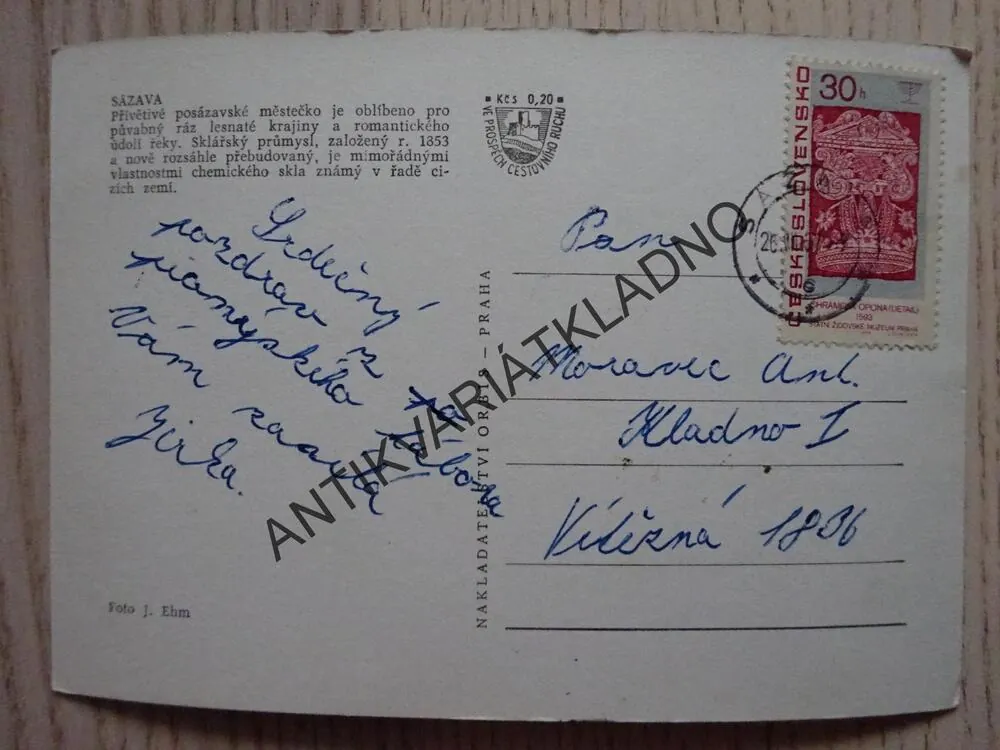 SÁZAVA
Přívětivé posázavské městečko je oblíbeno pro
půvabný ráz lesnaté krajiny a romantického
údolí řeky. Sklářský průmysl, založený r. 1853
a nově rozsáhle přebudovaný, je mimořádnými
vlastnostmi chemického skla známý v řadě ci-
zích zemí.
Kčs 0,20
VE PROSPĚCH CESTOVNÍHO RUCHU
Srdečný
pozdrav z
pionýrského
tábora
Vám zasýlá
Jirka.
Foto J. Ehm
NAKLADATELSTVÍ ORBIS – PRAHA
ČESKOSLOVENSKO
30h
CHRÁMOVÁ OPONA (DETAIL)
1593
STÁTNÍ ŽIDOVSKÉ MUZEUM PRAHA
Pan
Moravec Ant.
Kladno I
Vítězná 1836
ANTIKVARIÁTKLADNO